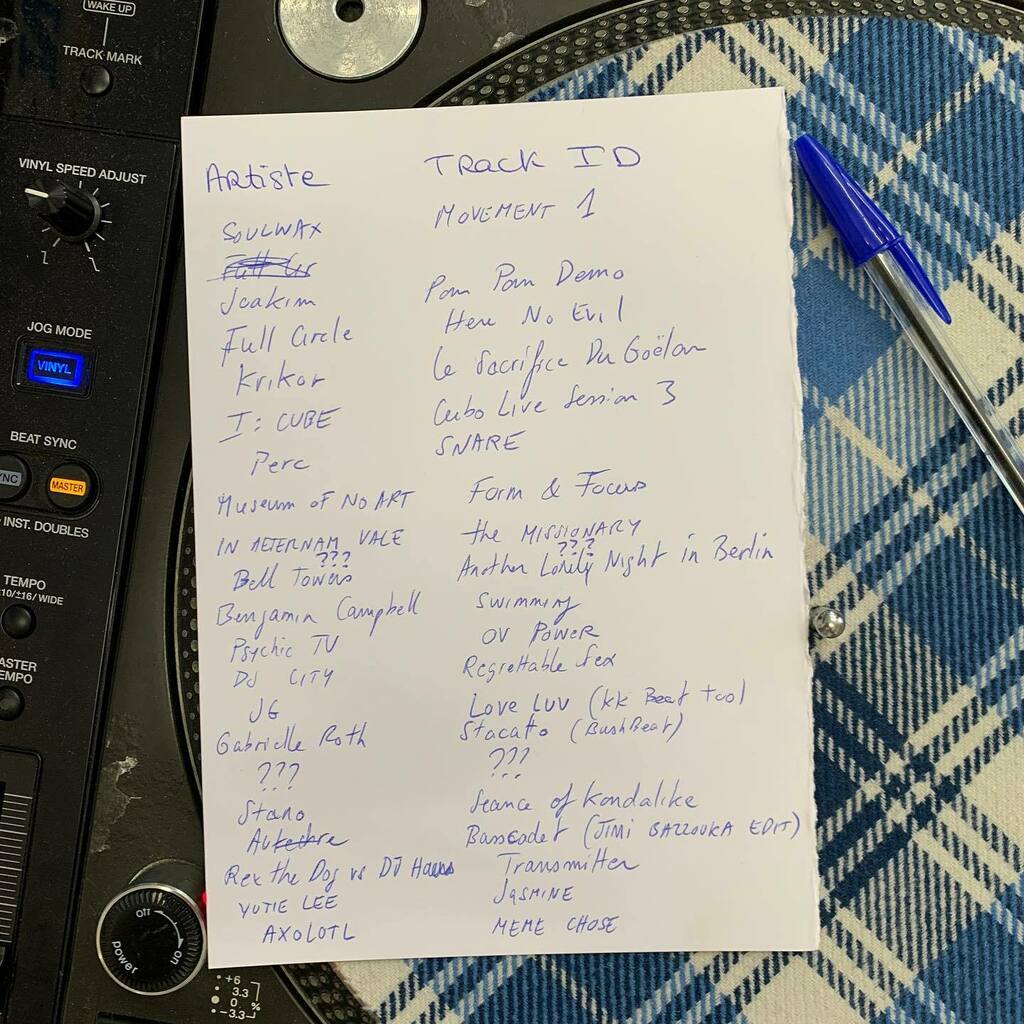 WAKE UP
TRACK MARK
VINYL SPEED ADJUST
JOG MODE
VINYL
BEAT SYNC
MASTER
INST. DOUBLES
TEMPO
±10/±16/WIDE
MASTER
TEMPO
Artiste Track ID
SOULWAX MOVEMENT 1
Joakim Pom Pom Demo
Full Circle Here No Evil
Krikor Le Sacrifice Du Goëlan
I: CUBE Cubo Live Session 3
Perc SNARE
Museum of NO ART Form & Focus
IN AETERNAM VALE the MISSIONARY
??? ???
Bell Towers Another Lonely Night in Berlin
Benjamin Campbell Swimming
Psychic TV OV POWER
DJ CITY Regrettable Sex
JG Love LUV (KK Beat tool)
Gabrielle Roth Stacato (BushBeat)
??? ???
Stano Seance of Kondalike
Autechre Basscadet (JIMI BAZZOUKA EDIT)
Rex the Dog vs DJ Transmitter
YUTIE LEE JASMINE
AXOLOTL MEME CHOSE
off
on
power
+6
3.3
0 %
-3.3